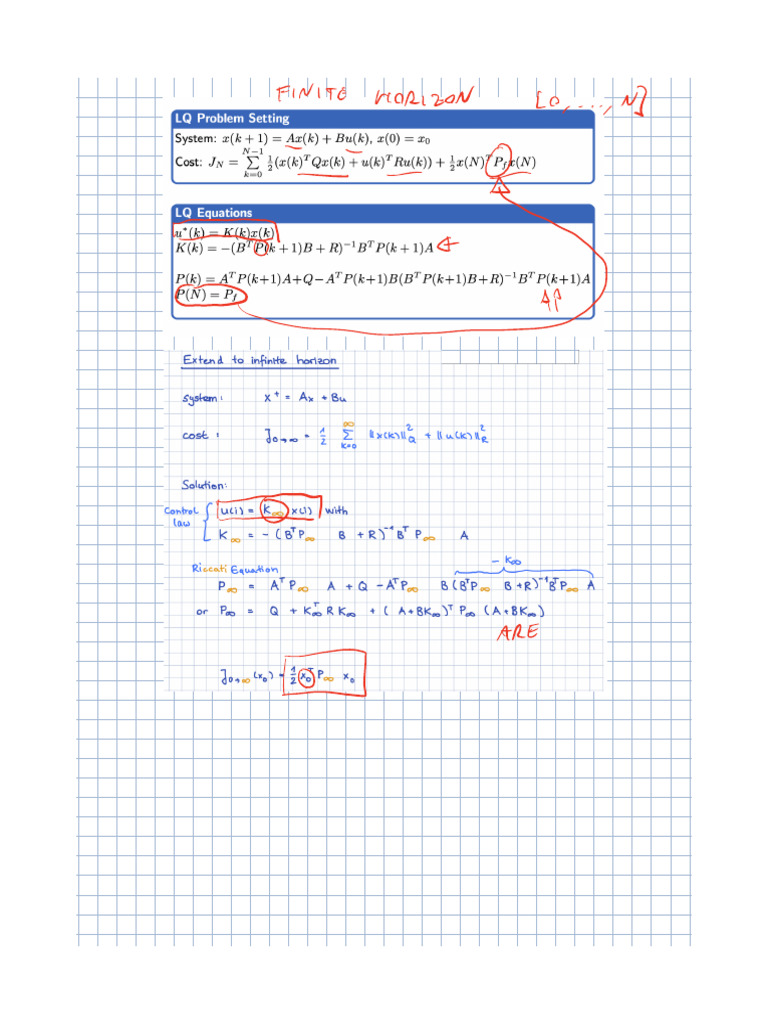 FINITE HORIZON [0, ..., N]
LQ Problem Setting
System: x(k + 1) = Ax(k) + Bu(k), x(0) = x₀
Cost: J_N = ∑_{k=0}^{N−1} ½(x(k)ᵀQx(k) + u(k)ᵀRu(k)) + ½x(N)ᵀP_f x(N)
LQ Equations
u*(k) = K(k)x(k)
K(k) = −(BᵀP(k + 1)B + R)⁻¹BᵀP(k + 1)A
P(k) = AᵀP(k+1)A+Q−AᵀP(k+1)B(BᵀP(k+1)B+R)⁻¹BᵀP(k+1)A
P(N) = P_f
Extend to infinite horizon
system: x⁺ = Ax + Bu
cost: J_{0→∞} = ½ ∑_{k=0}^{∞} ||x(k)||²_Q + ||u(k)||²_R
Solution:
Control law { u(i) = K_∞ x(i) with
K_∞ = − (BᵀP_∞ B + R)⁻¹ BᵀP_∞ A
− K_∞
Riccati Equation
P_∞ = AᵀP_∞ A + Q − AᵀP_∞ B (BᵀP_∞ B + R)⁻¹ BᵀP_∞ A
or P_∞ = Q + K_∞ᵀ R K_∞ + (A+BK_∞)ᵀ P_∞ (A+BK_∞)
ARE
J_{0→∞}(x₀) = ½ x₀ᵀ P_∞ x₀